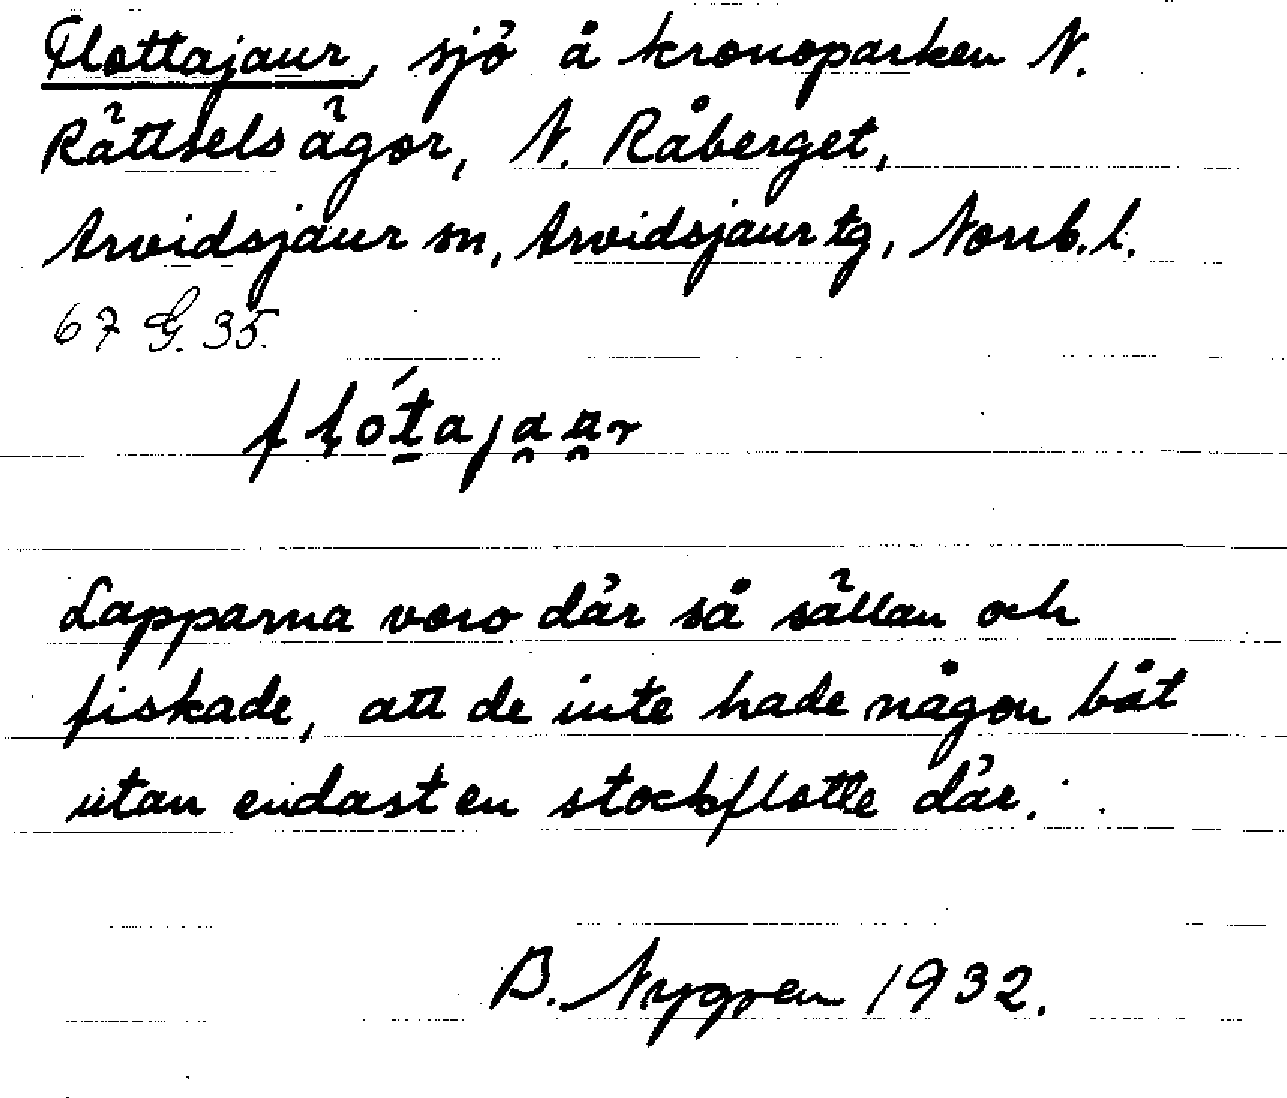 Flottajaur, sjö å kronoparken N.
Rättsels ägor, N. Råberget,
Arvidsjaur sn, Arvidsjaur tg, Norrb. l.
67 G. 35.
flótajaur
Lapparna voro där så sällan och
fiskade, att de inte hade någon båt
utan endast en stockflotte där.
B. Nygren 1932.